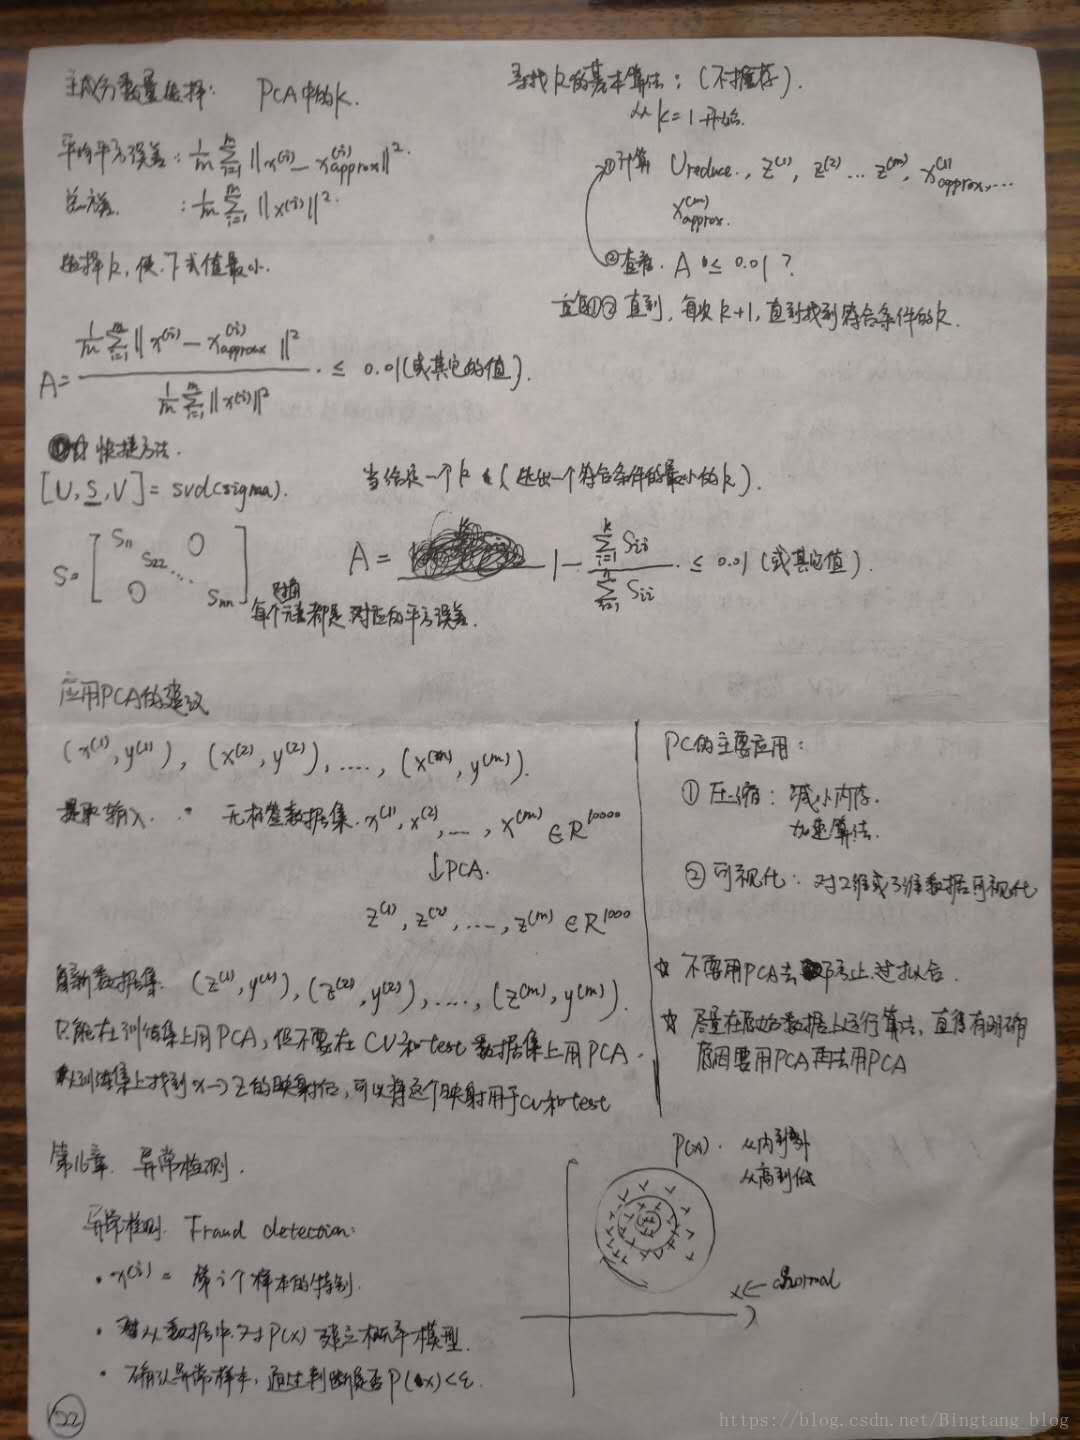 主成分数量选择： PCA中的k.
平均平方误差：1/m Σ_{i=1}^{m} ||x^(i) - x_approx^(i)||^2.
总方差 ：1/m Σ_{i=1}^{m} ||x^(i)||^2.
选择k，使下式值最小.
A = (1/m Σ_{i=1}^{m} ||x^(i) - x_approx^(i)||^2) / (1/m Σ_{i=1}^{m} ||x^(i)||^2) ≤ 0.01（或其它的值）.
寻找k的基本算法：（不推荐）.
从k=1开始.
①计算 Ureduce., z^(1), z^(2) ... z^(m), x_approx^(1), ...
x_approx^(m).
②查看. A ≤ 0.01？
①② 直到，每次k+1，直到找到符合条件的k.
快捷方法.
[U, S, V] = svd(sigma).
当给定一个k（选出一个符合条件的最小的k）.
S = [ S11 S22 ... Snn 0 0 ]
A = 1 - (Σ_{i=1}^{k} Sii) / (Σ_{i=1}^{n} Sii) ≤ 0.01（或其它值）.
对角
每个元素都是对应的平方误差.
应用PCA的建议
(x^(1), y^(1)), (x^(2), y^(2)), ...., (x^(m), y^(m)).
提取输入. 无标签数据集. x^(1), x^(2), ..., x^(m) ∈ R^10000
↓PCA.
z^(1), z^(2), ...., z^(m) ∈ R^1000
新数据集. (z^(1), y^(1)), (z^(2), y^(2)), ...., (z^(m), y^(m)).
只能在训练集上用PCA，但不要在CV和test数据集上用PCA.
从训练集上找到x→z的映射后，可以将这个映射用于cv和test
PC的主要应用：
① 压缩：减小内存.
加速算法.
② 可视化：对2维或3维数据可视化
☆ 不要用PCA去防止过拟合.
☆ 尽量在原始数据上运行算法，直得有明确
原因要用PCA再去用PCA
第16章. 异常检测.
异常检测. Fraud detection:
• x^(i) = 第i个样本的特别.
• 从数据中对P(x)建立概率模型.
• 确认异常样本，通过判断是否P(x)<ε.
P(x). 从内到外
从高到低
x ← abnormal
22
https://blog.csdn.net/Bingtang_blog